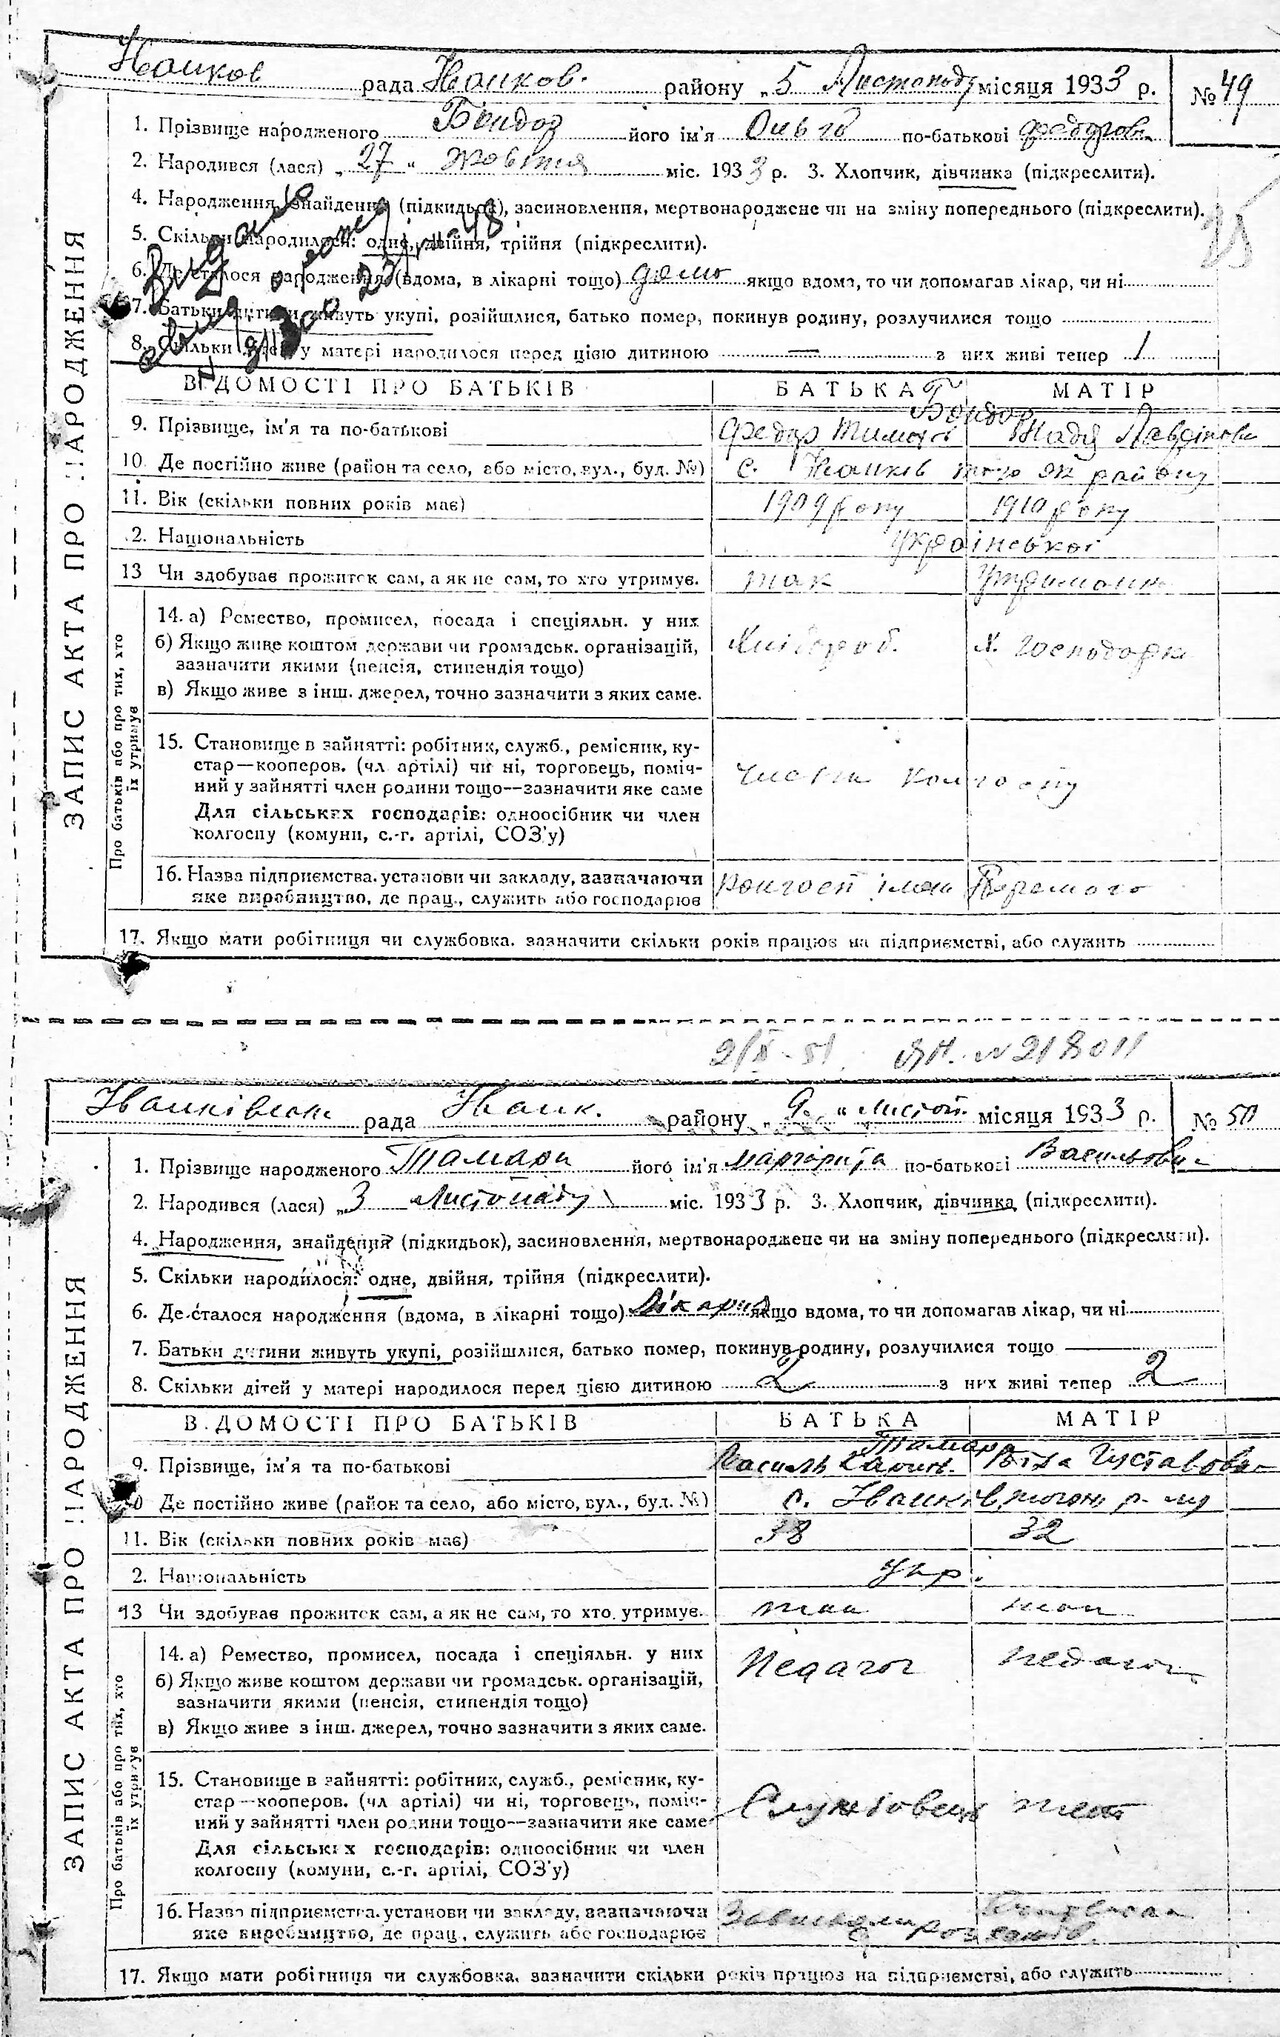 рада Іванков. району „5 Листопада місяця 1933 р. № 49
ЗАПИС АКТА ПРО НАРОДЖЕННЯ
1. Прізвище народженого Бондар його ім'я Ольга по-батькові Федорівн
2. Народився (лася) „27" жовтня міс. 1933 р. 3. Хлопчик, дівчинка (підкреслити).
4. Народження, знайдення (підкидьок), засиновлення, мертвонароджене чи на зміну попереднього (підкреслити).
5. Скільки народилося: одне, двійня, трійня (підкреслити).
6. Де сталося народження (вдома, в лікарні тощо) дома якщо вдома, то чи допомагав лікар, чи ні
7. Батьки дитини живуть укупі, розійшлися, батько помер, покинув родину, розлучилися тощо
8. Скільки дітей у матері народилося перед цією дитиною — з них живі тепер 1
ВІДОМОСТІ ПРО БАТЬКІВ БАТЬКА МАТІР
Бондар
9. Прізвище, ім'я та по-батькові Федар Тимош Надя Лаврінова
10. Де постійно живе (район та село, або місто, вул., буд. №) с. Іванків того як району
11. Вік (скільки повних років має) 1909 року 1910 року
12. Національність української
13 Чи здобуває прожиток сам, а як не сам, то хто утримує. так Утриманк
Про батьків або про тих, хто їх утримує
14. а) Ремество, промисел, посада і спеціяльн. у них
б) Якщо живе коштом держави чи громадськ. організацій, Хлібороб. Х. господарка
зазначити якими (пенсія, стипендія тощо)
в) Якщо живе з інш. джерел, точно зазначити з яких саме.
15. Становище в зайнятті: робітник, служб., ремісник, ку-
стар—кооперов. (чл артілі) чи ні, торговець, поміч- члени колгоспу
ний у зайнятті член родини тощо—зазначити яке саме
Для сільських господарів: одноосібник чи член
колгоспу (комуни, с.-г. артілі, СОЗ'у)
16. Назва підприємства, установи чи закладу, зазначаючи колгосп імені Перемога
яке виробництво, де прац., служить або господарює
17. Якщо мати робітниця чи службовка, зазначити скільки років працює на підприємстві, або служить
2/X-51 ЯН. № 218011
Іванківська рада Іванк. району „9" листоп. місяця 1933 р. № 50
ЗАПИС АКТА ПРО НАРОДЖЕННЯ
1. Прізвище народженого Тамара його ім'я Маргарита по-батькові Васильовн
2. Народився (лася) „3 Листопаду міс. 1933 р. 3. Хлопчик, дівчинка (підкреслити).
4. Народження, знайдення (підкидьок), засиновлення, мертвонароджене чи на зміну попереднього (підкреслити).
5. Скільки народилося: одне, двійня, трійня (підкреслити).
6. Де сталося народження (вдома, в лікарні тощо) Лікарня якщо вдома, то чи допомагав лікар, чи ні
7. Батьки дитини живуть укупі, розійшлися, батько помер, покинув родину, розлучилися тощо
8. Скільки дітей у матері народилося перед цією дитиною 2 з них живі тепер 2
ВІДОМОСТІ ПРО БАТЬКІВ БАТЬКА МАТІР
Тамара
9. Прізвище, ім'я та по-батькові Василь Густавовн
10 Де постійно живе (район та село, або місто, вул., буд. №) с. Іванків
11. Вік (скільки повних років має) 38 32
12. Національність укр.
13 Чи здобуває прожиток сам, а як не сам, то хто утримує. так так
Про батьків або про тих, хто їх утримує
14. а) Ремество, промисел, посада і спеціяльн. у них Педагог педагог
б) Якщо живе коштом держави чи громадськ. організацій,
зазначити якими (пенсія, стипендія тощо)
в) Якщо живе з інш. джерел, точно зазначити з яких саме.
15. Становище в зайнятті: робітник, служб., ремісник, ку-
стар—кооперов. (чл артілі) чи ні, торговець, поміч- Службовець теж
ний у зайнятті член родини тощо—зазначити яке саме
Для сільських господарів: одноосібник чи член
колгоспу (комуни, с.-г. артілі, СОЗ'у)
16. Назва підприємства, установи чи закладу, зазначаючи
яке виробництво, де прац., служить або господарює
17. Якщо мати робітниця чи службовка, зазначити скільки років працює на підприємстві, або служить